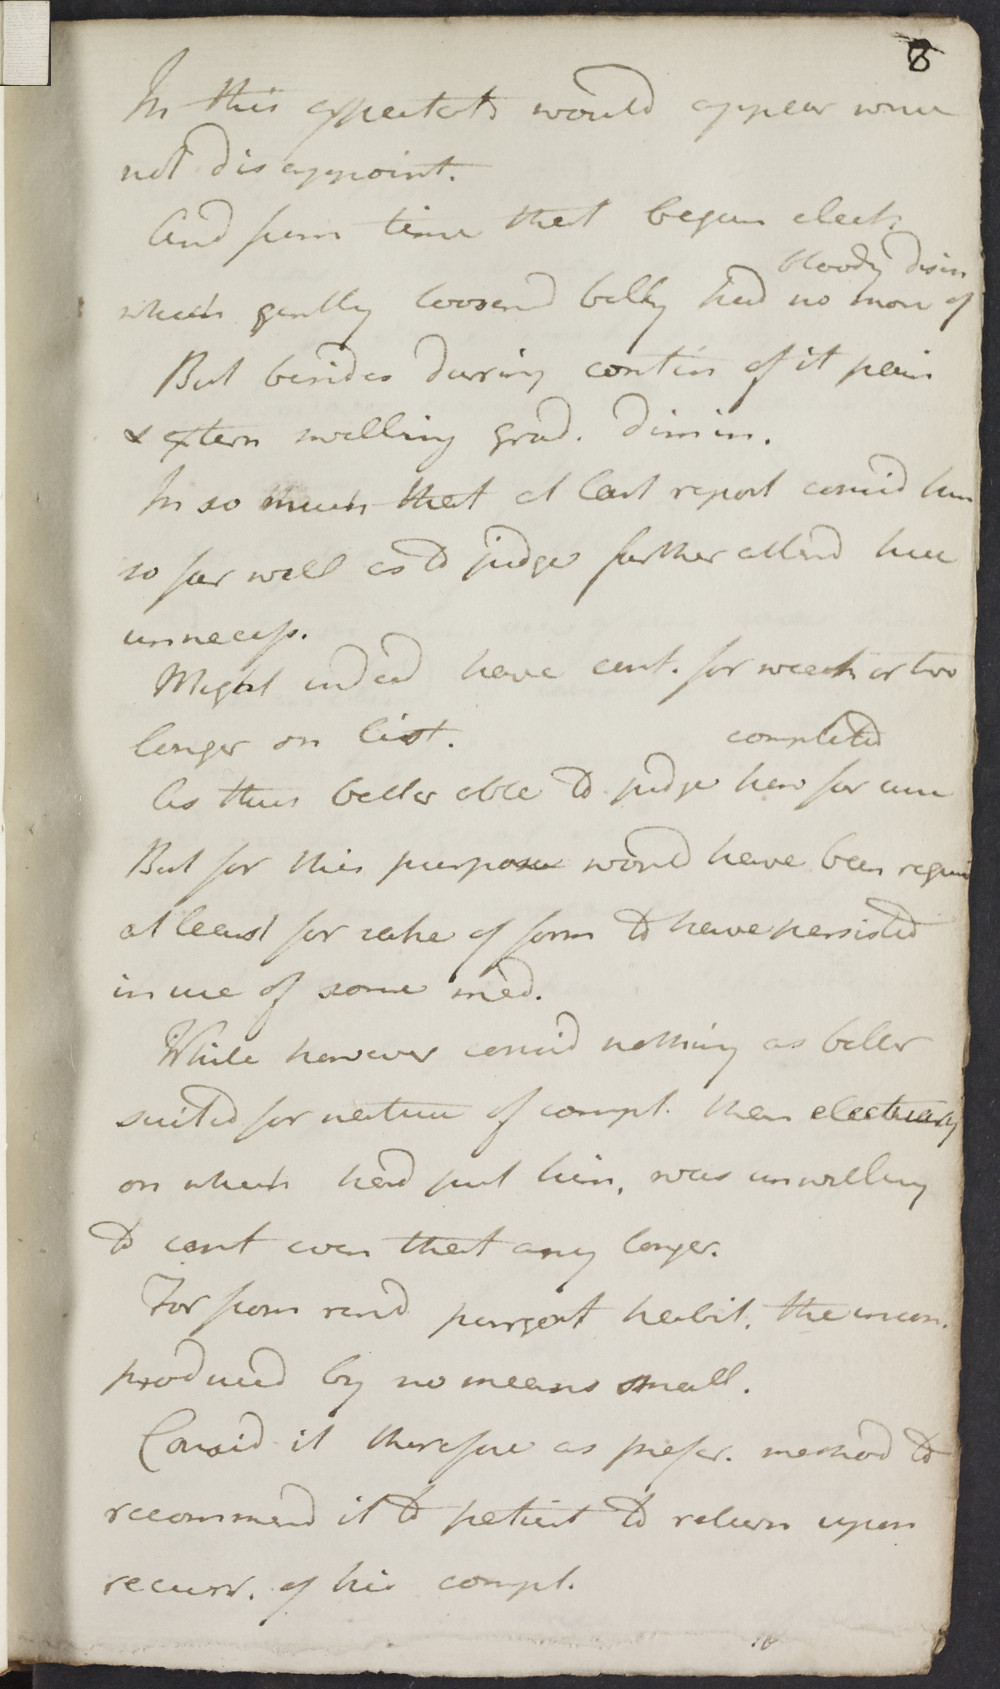 8
In this expectatn would appear were
not disappoint.
And from time that began elect.
bloody disin
which gently loosend belly had no more of
But besides during contin of it pain
& extern swelling grad. dimin.
In so much that at last report consid him
so far well as to judge further attend here
unnecess.
Might indeed have cont. for week or two
longer on list.
completed
As thus better able to judge how far cure
But for this purpose would have been requir
at least for sake of form to have persisted
in use of some med.
While however consid nothing as better
suited for nature of compl. than electuary
on which had put him, was unwilling
to cont even that any longer.
For from rend purgent habit. the incon.
produced by no means small.
Consid it therefore as prefer. method to
recommend it to patient to return upon
recurr. of his compl.